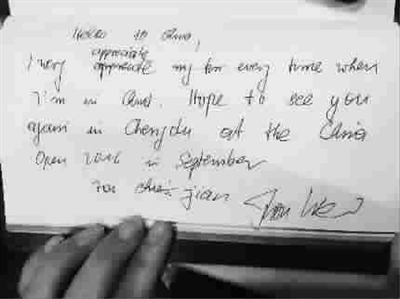 Hello to China,
appreciate
I very my fan every time when
I'm in China. Hope to see you
again in Chengdu at the China
Open 2016 in September
For chen jian